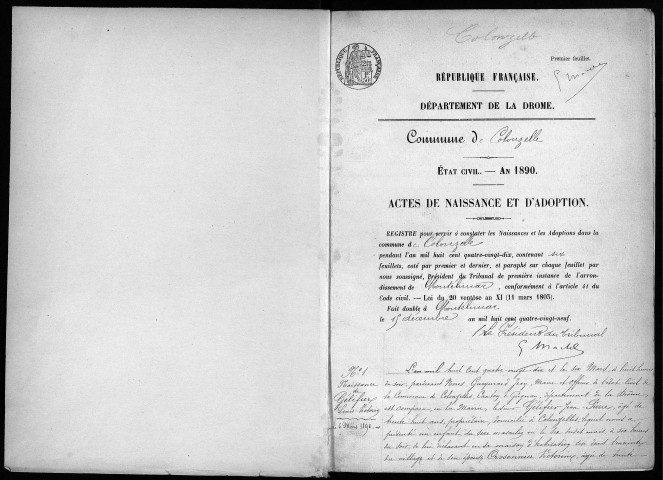 Colonzelle
Premier feuillet.
RÉPUBLIQUE FRANÇAISE.
DÉPARTEMENT DE LA DROME.
Commune de Colonzelle
ÉTAT CIVIL. — AN 1890.
ACTES DE NAISSANCE ET D'ADOPTION.
REGISTRE pour servir à constater les Naissances et les Adoptions dans la
commune de Colonzelle
pendant l'an mil huit cent quatre-vingt-dix, contenant six
feuillets, coté par premier et dernier, et paraphé sur chaque feuillet par
nous soussigné, Président du Tribunal de première instance de l'arron-
dissement de Montélimar, conformément à l'article 41 du
Code civil. — Loi du 20 ventôse an XI (11 mars 1803).
Fait double à Montélimar
le 15 décembre au mil huit cent quatre-vingt-neuf.
Le Président du tribunal
N° 1
Naissance
de
L'an mil huit cent quatre vingt dix et le six Mars, à
du soir, pardevant Nous Maire et officier de l'état civil de
la Commune de Colonzelle, Canton de Grignan, département de la Drôme,
est comparu en la Mairie, le sieur Jean Pierre, âgé de
trente huit ans, propriétaire, domicilié à Colonzelle, lequel nous a
présenté un enfant du sexe
du soir, de lui déclarant en sa maison d'habitation
du village et de son épouse Victorine, âgée de trente